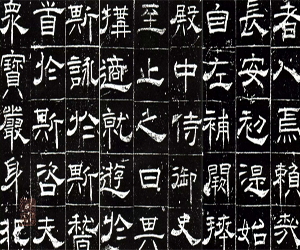 者人焉賴
長安初湜始
自左補闕拜
殿中侍御史
至止之日其
搆適就遊於
斯詠於斯稽
首於斯咨夫
眾寶嚴身